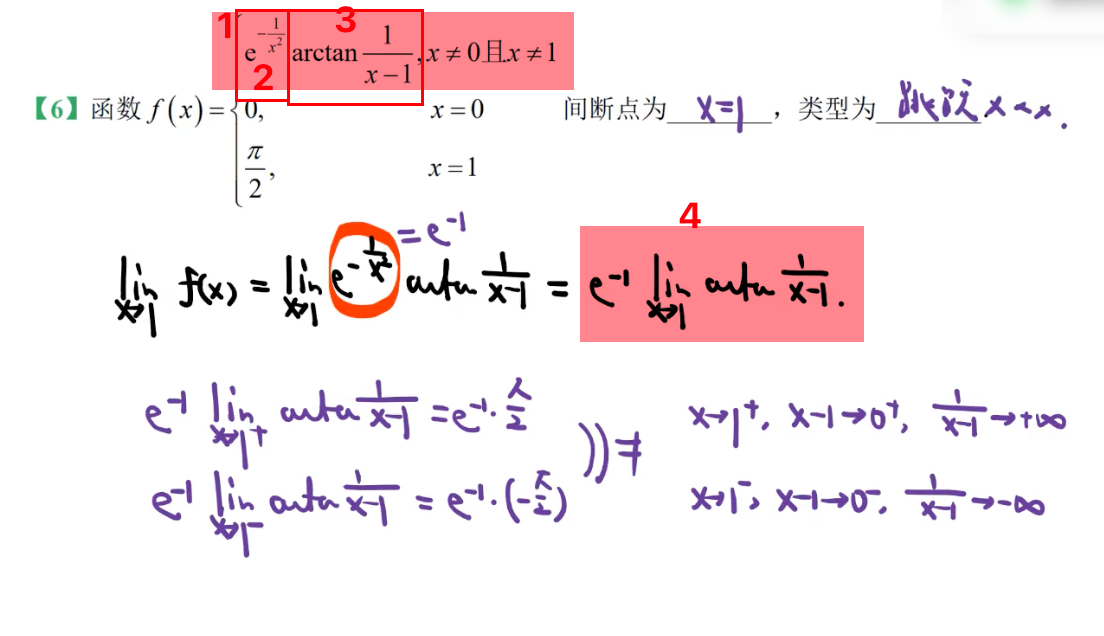 1 3
e^{-\frac{1}{x^2}} arctan \frac{1}{x-1}, x ≠ 0且x ≠ 1
2
【6】函数 f(x) = { 0, x = 0 间断点为 x=1 , 类型为 跳跃
\frac{π}{2}, x = 1
4
= e^{-1}
lim_{x→1} f(x) = lim_{x→1} e^{-\frac{1}{x^2}} arctan \frac{1}{x-1} = e^{-1} lim_{x→1} arctan \frac{1}{x-1}.
e^{-1} lim_{x→1^+} arctan \frac{1}{x-1} = e^{-1}·\frac{π}{2} x→1^+, x-1→0^+, \frac{1}{x-1}→+∞
)) ≠
e^{-1} lim_{x→1^-} arctan \frac{1}{x-1} = e^{-1}·(-\frac{π}{2}) x→1^-, x-1→0^-, \frac{1}{x-1}→-∞